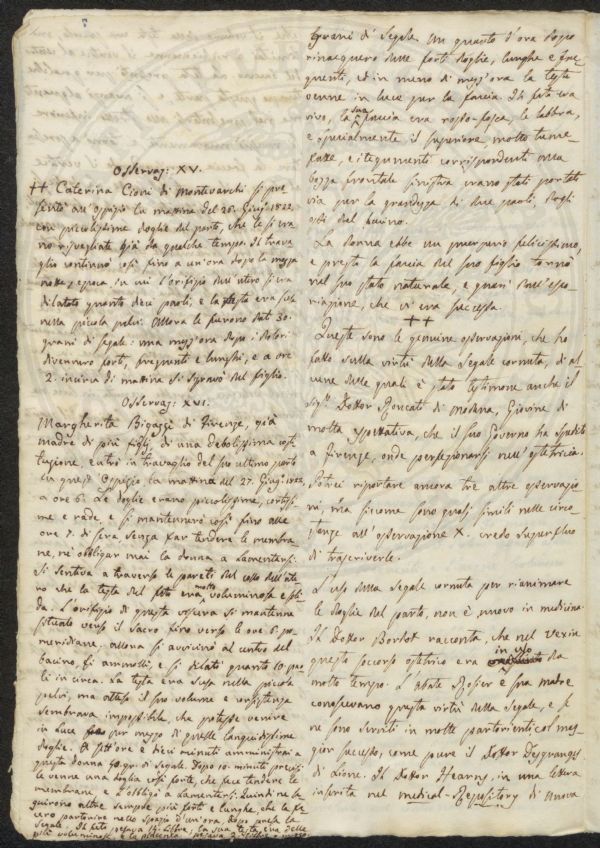 Osservaz: XV.
++ Caterina Cioni di Montevarchi si pre
sentò all'Ospizio la mattina del 26. Giug.º 1822.
con piccolissime doglie del parto, che le si era
no risvegliate già da qualche tempo. Il trava
glio continuò così fino a un'ora dopo la mezza
notte, epoca in cui l'orifizio dell'utero si era
dilatato quanto dieci paoli, e la testa era scesa
nella piccola pelvi. Allora le furono dati 30.
grani di segale: una mezz'ora dopo i dolori
divennero forti, frequenti e lunghi, e a ore
2. incirca di mattina si sgravò del figlio.
Osservaz: XVI.
Margherita Bigazzi di Firenze, già
madre di più figli, di una debolissima costi
tuzione, entrò in travaglio del suo ultimo parto
in quest'Ospizio la mattina del 27. Giug.º 1822,
a ore 6. Le doglie erano piccolissime, cortissi
me e rade, e si mantennero così fino alle
ore 7. di sera, senza far tendere le membra
ne, nè obbligar mai la donna a lamentarsi.
Si sentiva a traverso le pareti del collo dell'ute
ro che la testa del feto era molto voluminosa e soli
da. L'orifizio di questa viscera si mantenne
situato verso il sacro fino verso le ore 6. po
meridiane, allora si avvicinò al centro del
bacino, si ammollì, e si dilatò quanto 10. pao
li in circa. La testa era scesa nella piccola
pelvi, ma atteso il suo volume e consistenza
sembrava impossibile, che potesse venire
in luce per mezzo di quelle languidissime
doglie. A sett'ore e dieci minuti amministrai a
questa donna 40. gr: di segale. Dopo 10. minuti precisi
le venne una doglia così forte, che fece tendere le
membrane, e l'obbligò a lamentarsi. Quindi ne se
guirono altre sempre più forti e lunghe, che la fe
cero partorire nello spazio d'un'ora dopo presa la
segale. Il feto pesava libbre; la sua testa era delle
più voluminose, e la placenta pesava 2. libbre e mezzo.
grani di segale. Un quarto d'ora dopo
rinacquero delle forti doglie, lunghe e fre
quenti, ed in meno di mezz'ora la testa
venne in luce per la faccia. Il feto era
vivo, la sua faccia era rosso-fosca, le labbra,
e specialmente il superiore, molto tume-
fatte, e i tegumenti corrispondenti alla
bozza frontale sinistra erano stati portati
via per la grandezza di due paoli, dagli
ossi del bacino.
La donna ebbe un puerperio felicissimo,
e presto la faccia del suo figlio tornò
nel suo stato naturale, e guarì dall'esco-
riazione, che vi era successa.
++
Queste sono le genuine osservazioni, che ho
fatto sulla virtù della segale cornuta, di al
cune delle quali è stato testimone anche il
Sig.r Dottor Boncati di Modena, Giovine di
molta aspettativa, che il suo Governo ha spedito
a Firenze, onde perfezionarsi nell'ostetricia.
Potrei riportare ancora tre altre osservazio
ni, ma siccome sono quasi simili nelle circo
stanze all'osservazione X. credo superfluo
di trascriverle.
L'uso della segale cornuta per rianimare
le doglie del parto, non è nuovo in medicina.
Il Dottor Bordot racconta, che nel Vexin
questo soccorso ostetrico era in uso da
molto tempo. L'Abate Rosier e sua madre
conoscevano questa virtù della segale, e se
ne sono serviti in molte partorienti col mag
gior successo, come pure il Dottor Desgranges
di Lione. Il Dottor Hearns, in una lettera
inserita nel medical-Repository di Nuova